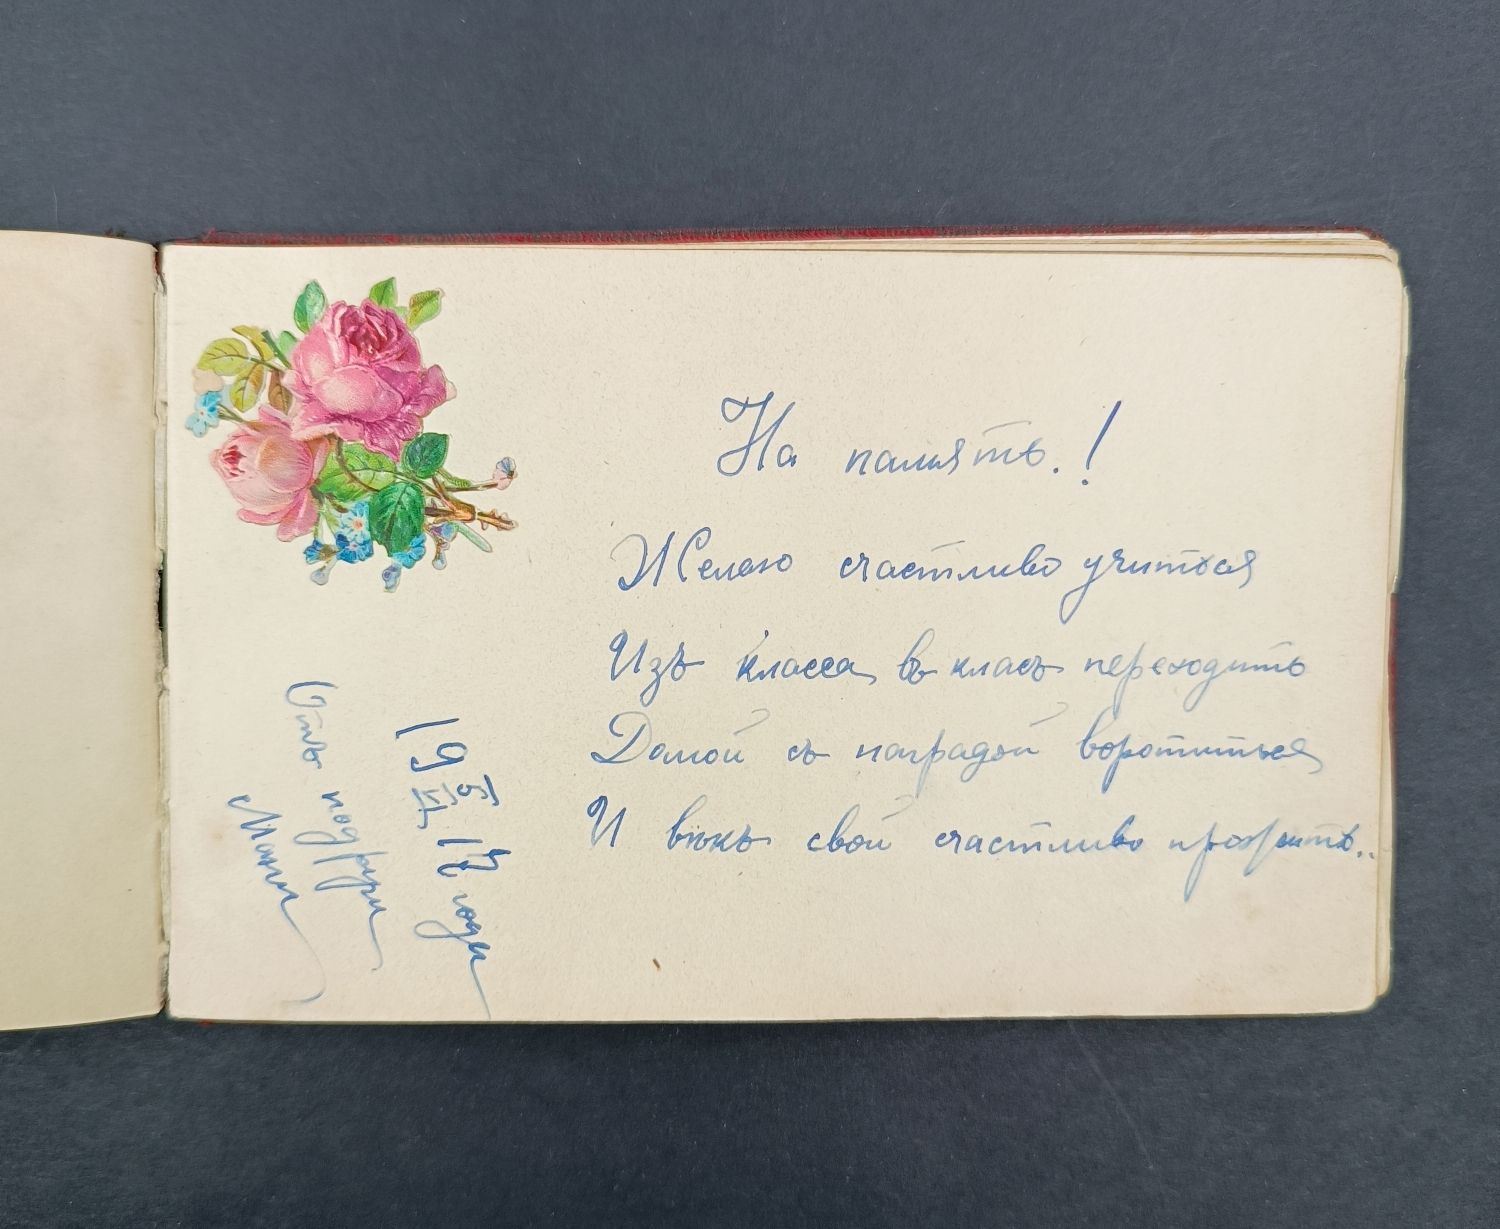 На память.!
Желаю счастливо учиться
Изъ класса въ класъ переходить
Домой съ наградой воротиться
И вѣкъ свой счастливо прожить..
19 5/IV 17 года
Отъ подруги
Мани